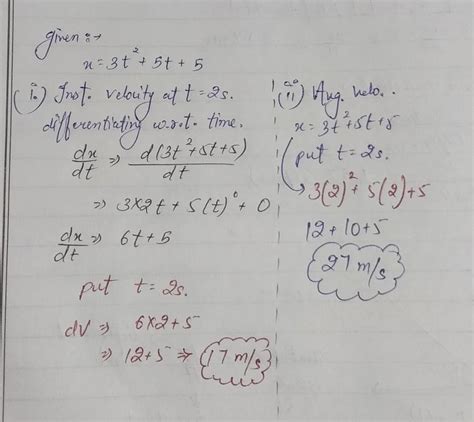 Given :→
x = 3t² + 5t + 5
(i) Inst. velocity at t = 2s.
differentiating w.r.t. time.
dx/dt ⇒ d(3t²+5t+5)/dt
⇒ 3×2t + 5(t)⁰ + 0
dx/dt ⇒ 6t+5
put t = 2s.
dV ⇒ 6×2+5
⇒ 12+5 ⇒ 17 m/s
(ii) Avg. velo. .
x = 3t²+5t+5
put t = 2s.
→ 3(2)² + 5(2)+5
12+10+5
27 m/s